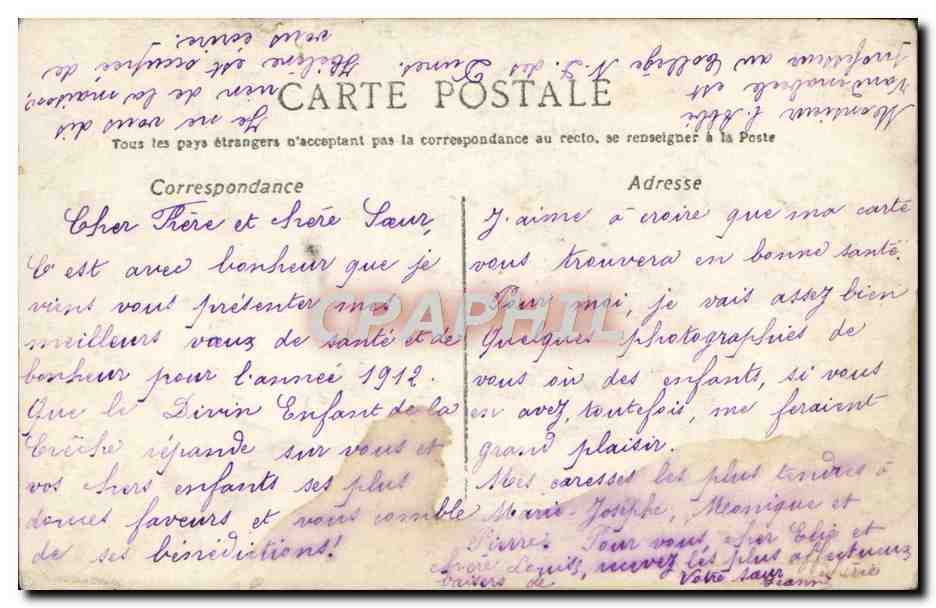 CARTE POSTALE
Tous les pays étrangers n'acceptant pas la correspondance au recto, se renseigner à la Poste
Correspondance
Cher Frère et chère Sœur,
C'est avec bonheur que je
viens vous présenter mes
meilleurs vœux de santé et de
bonheur pour l'année 1912.
Que le Divin Enfant de la
Crèche répande sur vous et
vos chers enfants ses plus
douces faveurs et vous comble
de ses bénédictions!
Adresse
J'aime à croire que ma carte
vous trouvera en bonne santé.
Pour moi, je vais assez bien
Quelques photographies de
vous ou des enfants, si vous
en avez, toutefois, me feraient
grand plaisir.
Mes caresses les plus tendres à
Marie-Josèphe, Monique et
Pierre. Pour vous, cher Elie et
chère Louise, recevez les plus affectueux
baisers de
Votre sœur
Jeanne
Monsieur l'Abbé
est
professeur au Collège N. D. des Dunes.
Je ne vous dis
rien de la maison,
Hélène est occupée de
vous écrire.
CPAPHIL